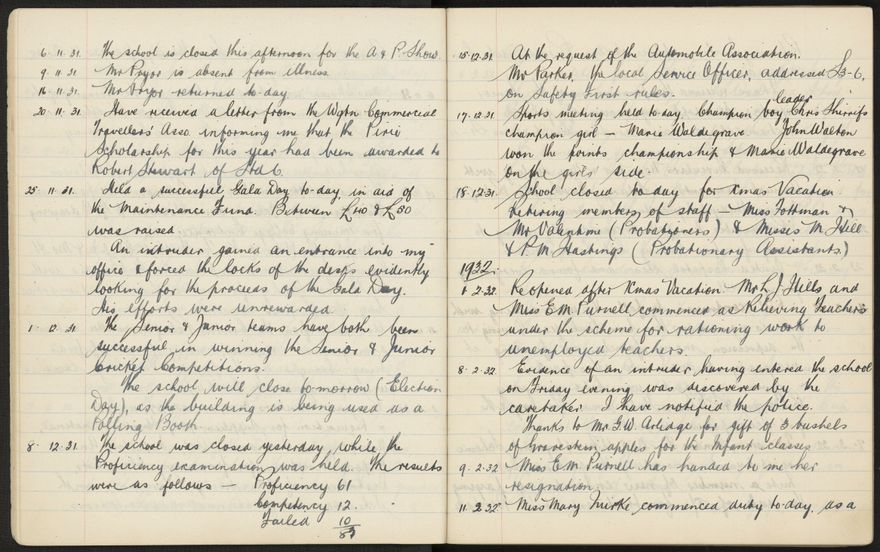 6. 11. 31. The school is closed this afternoon for the A & P Show.
9. 11. 31 Mr Pryor is absent from illness.
16. 11. 31. Mr Pryor returned to-day
20. 11. 31. Have received a letter from the Wgtn Commercial
Travellers' Asso. informing me that the Pirie
Scholarship for this year had been awarded to
Robert Stewart of Std 6.
25. 11. 31. Held a successful Gala Day to-day, in aid of
the Maintenance Fund. Between £40 & £50
was raised.
An intruder gained an entrance into my
office & forced the locks of the desks evidently
looking for the proceeds of the Gala Day.
His efforts were unrewarded.
1. 12. 31. The Senior & Junior teams have both been
successful in winning the Senior & Junior
Cricket Competitions.
The school will close to-morrow (Election
Day), as the building is being used as a
Polling Booth
8. 12. 31. The school was closed yesterday, while the
Proficiency examination was held. The results
were as follows — Proficiency 61
Competency 12.
Failed 10
83
15-12-31 At the request of the Automobile Association.
Mr Parker, the local Service Officer, addressed S3-6,
on Safety First rules.
leader
17-12-31 Sports meeting held to day. Champion boy Chris Sherriffs
champion girl — Marie Waldegrave John Walton
won the points championship & Marie Waldegrave
on the girls' side.
18-12-31. School closed to day for Xmas Vacation.
Retiring members of staff — Miss Tottman &
Mr Valentine (Probationers) & Misses M. Hill
& P. M Hastings (Probationary Assistants.)
1932.
1. 2-32. Re opened after Xmas Vacation. Mr L J Hills and
Miss E M Purnell commenced as Relieving Teachers
under the scheme for rationing work to
unemployed teachers.
8-2-32 Evidence of an intruder having entered the school
on Friday evening was discovered by the
caretaker. I have notified the police.
Thanks to Mr G. W. Arlidge for gift of 3 bushels
of Gravenstein apples for the Infant classes
9. 2-32 Miss E M Purnell has handed to me her
resignation
11. 2 32 Miss Mary commenced duty to-day, as a